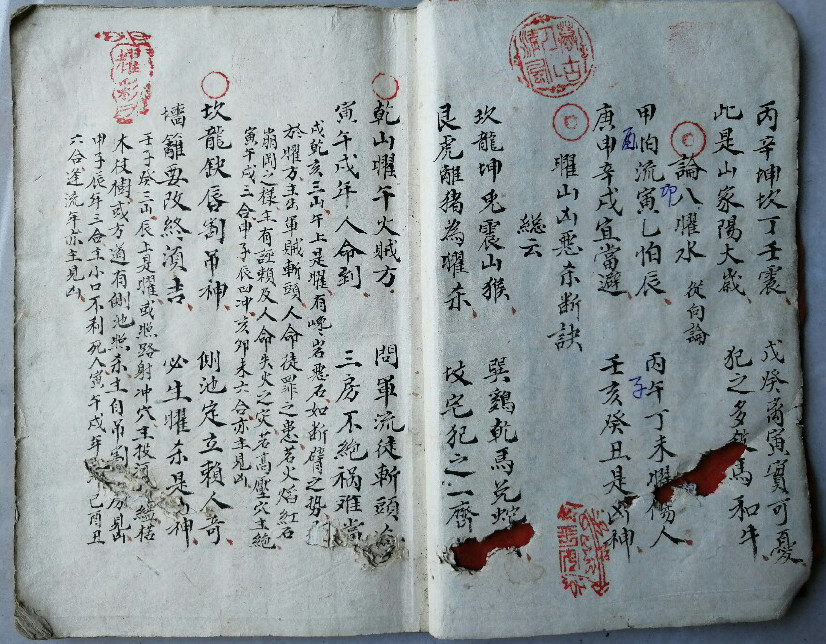 丙辛坤坎丁壬震　戊癸离寅實可憂
此是山家陽大歲　犯之多　馬和牛
論八曜水　從向論
甲怕流寅乙怕辰　丙午丁未曜傷人
卯
子
庚申辛戌宜當避　壬亥癸丑是凶神
酉
曜山凶惡杀断訣
総云
坎龍坤兎震山猴　巽鷄乾馬兑蛇
艮虎離猪為曜杀　坟宅犯之一齊
乾山曜午火賊方　問軍流徒斬頭
寅午戌年人命到　三房不絶祸难當
戌乾亥三山午上是曜有嶂岩惡石如断臂之勢
於曜方主出軍賊斬頭人命徒罪之患若火焰红石
崩岡之樣主有誣賴及人命失火之灾若高壓穴主絶
寅午戌三合申子辰四冲亥卯未六合亦主見凶
坎龍缺唇割吊神　側池定立賴人奇
墻籬要改終須吉　必生曜杀是　神
壬子癸三山辰上是曜或照路射冲穴主投河　縊枯
木枝樹或方過有側池照杀主自吊割　房見凶
申子辰年三合主小口不利死人寅午戌年　巳酉丑
六合逢流年亦主見凶
耀彩